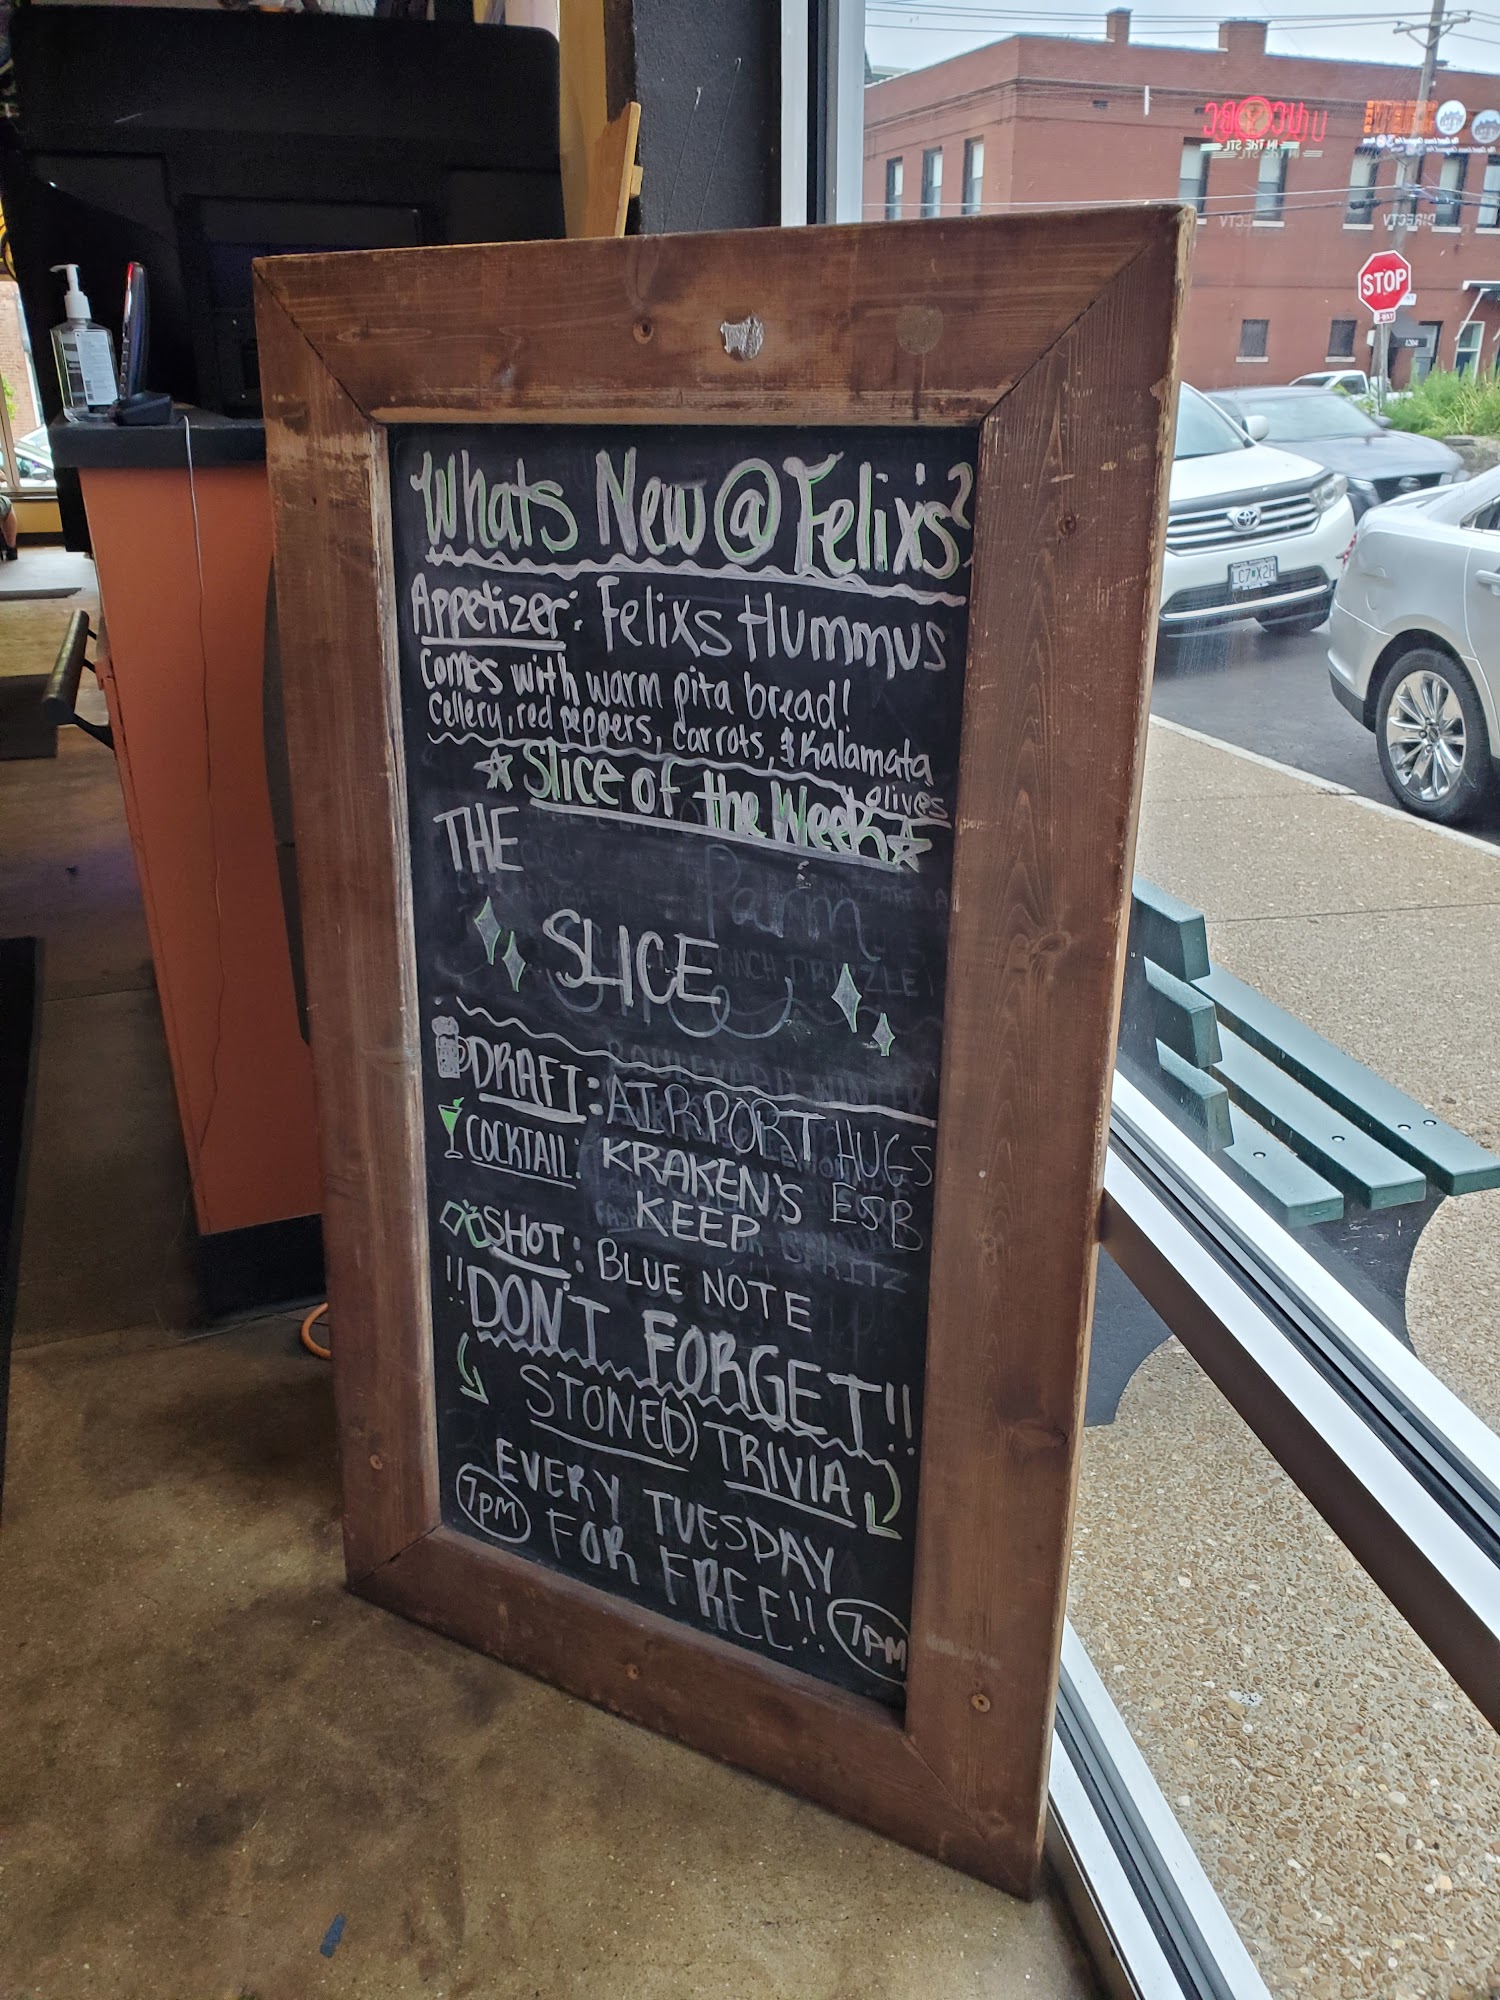 Whats New @ Felix's?
Appetizer: Felixs Hummus
Comes with warm pita bread!
Cellery, red peppers, carrots, & Kalamata
olives
Slice of the Week
THE
Parm
SLICE
DRAFT: AIRPORT HUGS
ESB
COCKTAIL: KRAKEN'S
KEEP
SPRITZ
SHOT: BLUE NOTE
!!DON'T FORGET!!
STONE(D) TRIVIA
EVERY TUESDAY
7PM FOR FREE!! 7PM
STOP
IN THE STL
DIRECTV
1204
LC7 X2H